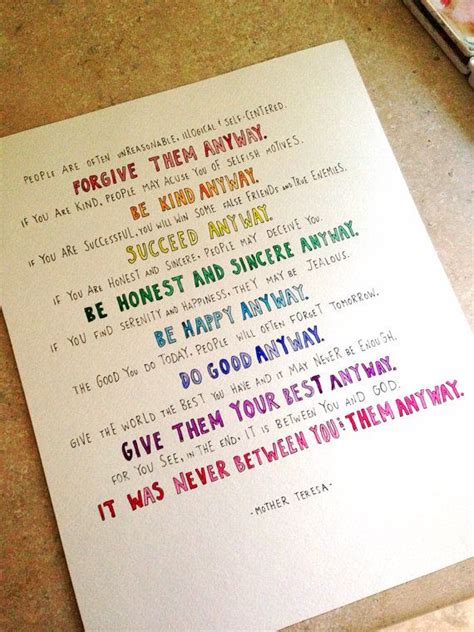 PEOPLE ARE OFTEN UNREASONABLE, ILLOGICAL & SELF-CENTERED.
FORGIVE THEM ANYWAY.
IF YOU ARE KIND, PEOPLE MAY ACUSE YOU OF SELFISH MOTIVES.
BE KIND ANYWAY.
IF YOU ARE SUCCESSFUL, YOU WILL WIN SOME FALSE FRIENDS AND TRUE ENEMIES.
SUCCEED ANYWAY.
IF YOU ARE HONEST AND SINCERE, PEOPLE MAY DECEIVE YOU.
BE HONEST AND SINCERE ANYWAY.
IF YOU FIND SERENITY AND HAPPINESS, THEY MAY BE JEALOUS.
BE HAPPY ANYWAY.
THE GOOD YOU DO TODAY, PEOPLE WILL OFTEN FORGET TOMORROW.
DO GOOD ANYWAY.
GIVE THE WORLD THE BEST YOU HAVE AND IT MAY NEVER BE ENOUGH.
GIVE THEM YOUR BEST ANYWAY.
FOR YOU SEE, IN THE END, IT IS BETWEEN YOU AND GOD.
IT WAS NEVER BETWEEN YOU & THEM ANYWAY.
-MOTHER TERESA-